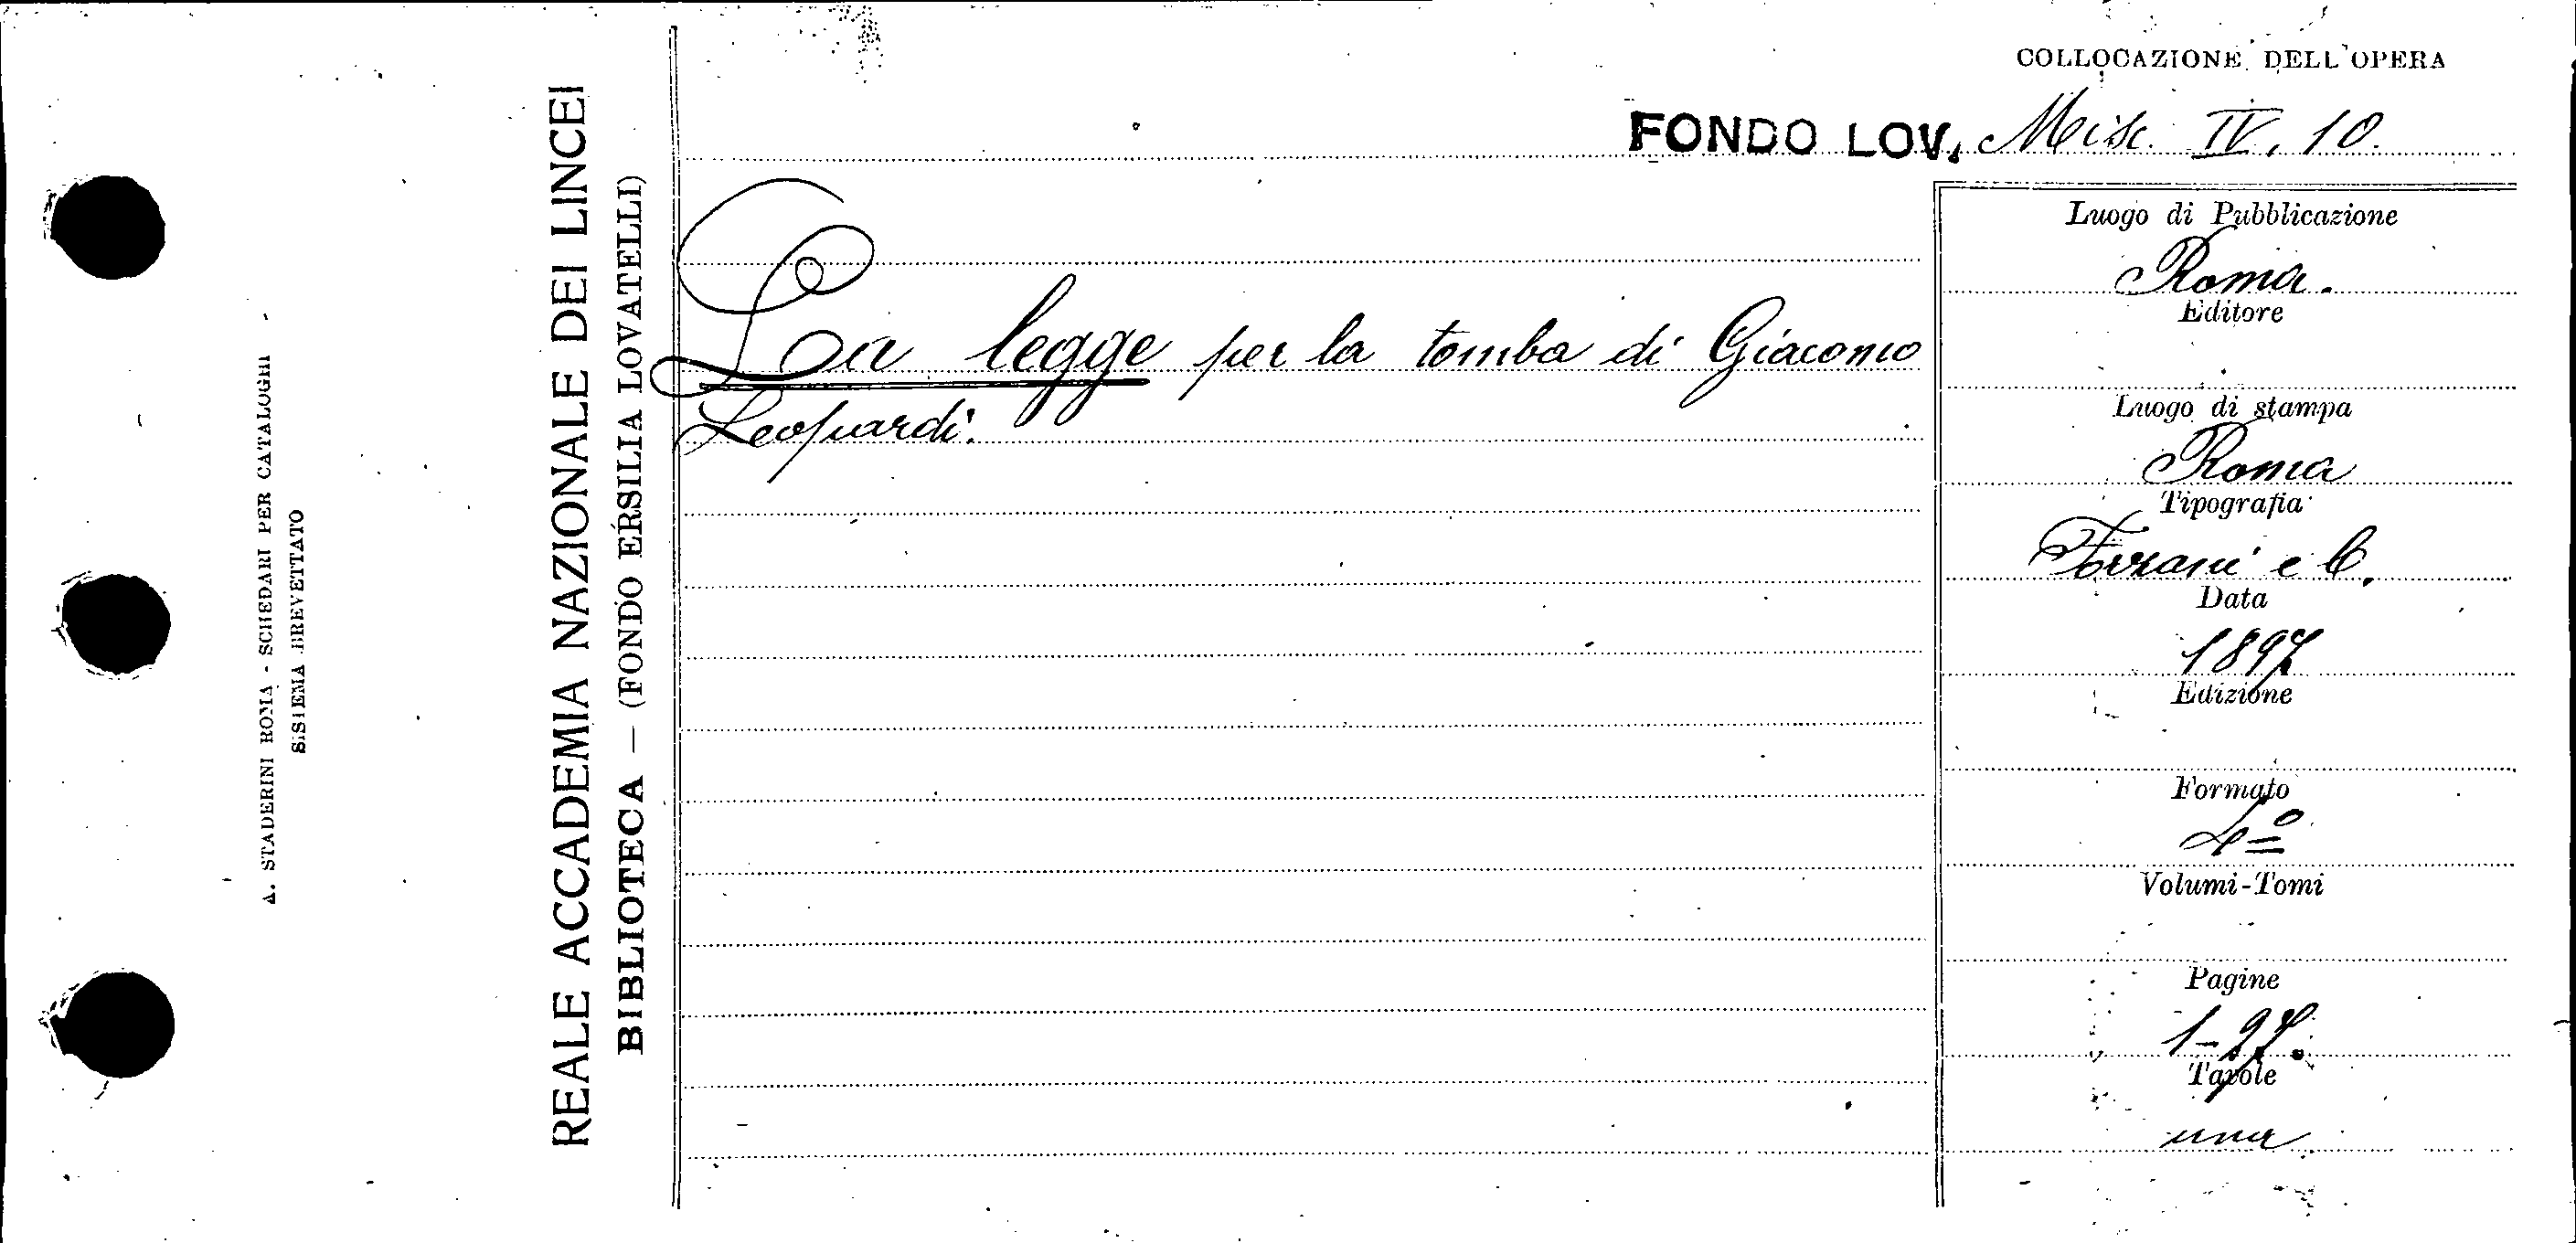 COLLOCAZIONE DELL'OPERA
FONDO LOV. Misc. IV. 10.
A. STADERINI ROMA - SCHEDARI PER CATALOGHI
SISTEMA BREVETTATO
REALE ACCADEMIA NAZIONALE DEI LINCEI
BIBLIOTECA — (FONDO ERSILIA LOVATELLI)
La legge per la tomba di Giacomo
Leopardi.
Luogo di Pubblicazione
Roma.
Editore
Luogo di stampa
Roma
Tipografia
Forzani e C.
Data
1897
Edizione
Formato
4º
Volumi-Tomi
Pagine
1-27.
Tavole
una